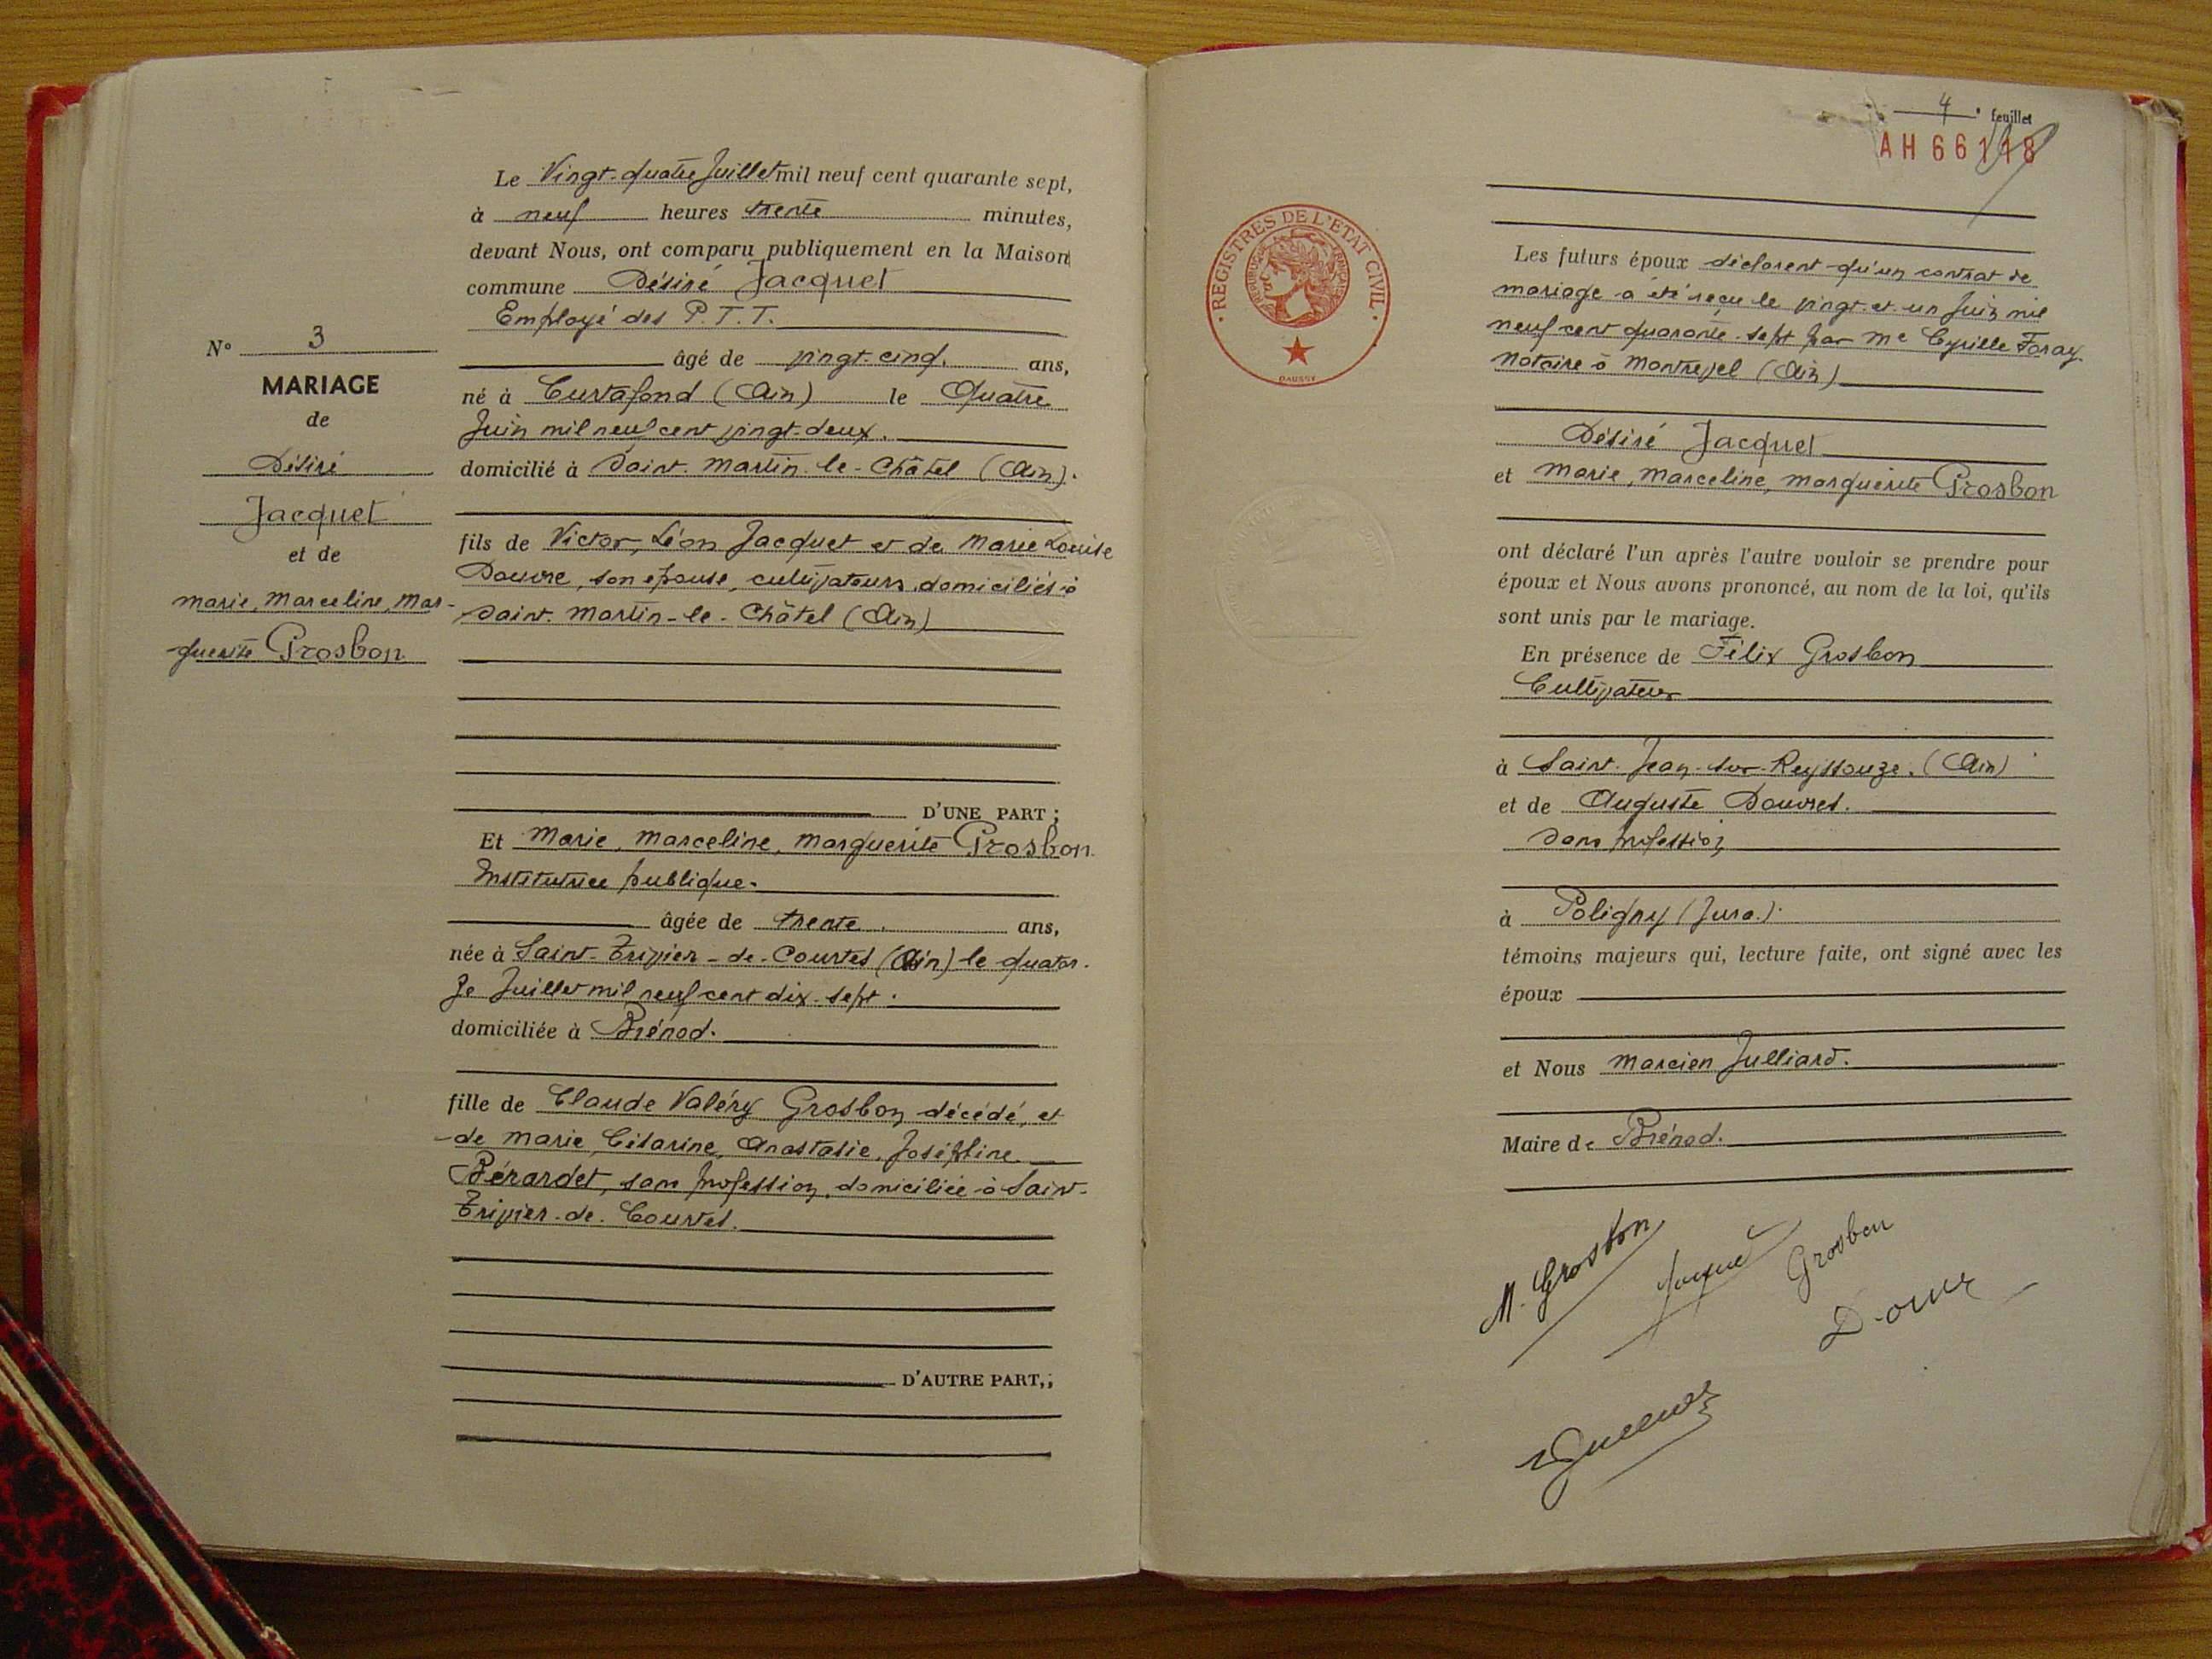 N° 3
MARIAGE
de
Désiré
Jacquet
et de
Marie, Marceline, Mar-
guerite Grosbon
Le Vingt-quatre Juillet mil neuf cent quarante sept,
à neuf heures trente minutes,
devant Nous, ont comparu publiquement en la Maison
commune Désiré Jacquet
Employé des P.T.T.
âgé de vingt-cinq. ans,
né à Curtafond (Ain) le Quatre
Juin mil neuf cent vingt-deux.
domicilié à Saint-Martin-le-Châtel (Ain).
fils de Victor, Léon Jacquet et de Marie Louise
Douvre, son épouse, cultivateurs, domiciliés à
Saint-Martin-le-Châtel (Ain)
D'UNE PART ;
Et Marie, Marceline, Marguerite Grosbon
Institutrice publique.
âgée de trente. ans,
née à Saint-Trivier-de-Courtes (Ain) le quator-
ze Juillet mil neuf cent dix-sept.
domiciliée à Brénod.
fille de Claude Valéry Grosbon, décédé, et
de Marie, Césarine, Anastasie, Joséphine
Bérardet, sans profession, domiciliée à Saint-
Trivier-de-Courtes.
D'AUTRE PART,;
4e feuillet
AH 66118
REGISTRES DE L'ETAT CIVIL
REPUBLIQUE FRANÇAISE
DAUSSY
Les futurs époux déclarent qu'un contrat de
mariage a été reçu le vingt-et-un Juin mil
neuf cent quarante-sept par Me Cyrille Foray
notaire à Montrevel (Ain)
Désiré Jacquet
et Marie, Marceline, Marguerite Grosbon
ont déclaré l'un après l'autre vouloir se prendre pour
époux et Nous avons prononcé, au nom de la loi, qu'ils
sont unis par le mariage.
En présence de Félix Grosbon
Cultivateur
à Saint-Jean-sur-Reyssouze. (Ain)
et de Auguste Douvres.
Sans profession
à Poligny (Jura.)
témoins majeurs qui, lecture faite, ont signé avec les
époux
et Nous Marcien Julliard.
Maire de Brénod.
M. Grosbon
Jacquet
Grosbon